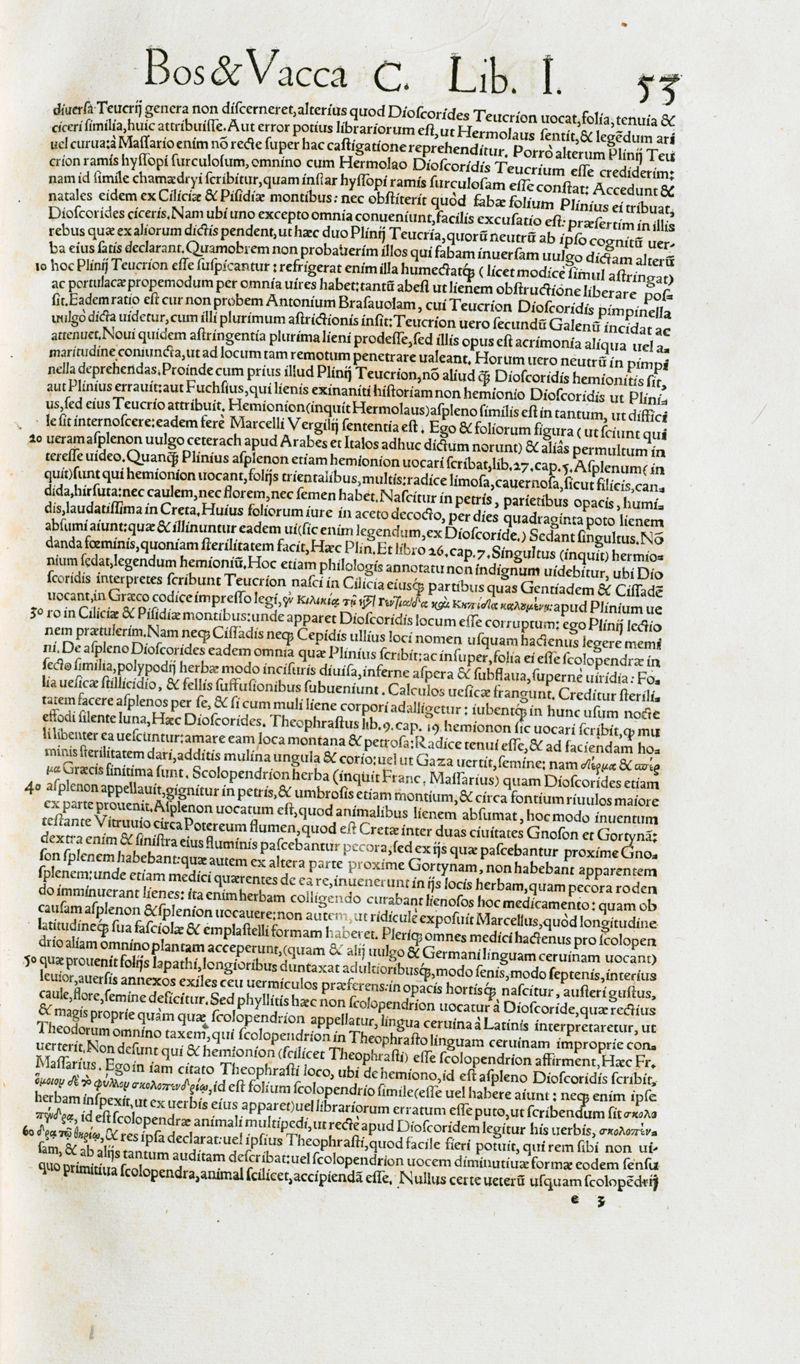 Bos & Vacca C. Lib. I. 53
diuersa Teucrij genera non discerneret,alterius quod Dioscorides Teucrion uocat,folia,tenuia &
ciceri similia,huic attribuisse. Aut error potius librariorum est,ut Hermolaus sentit,& legēdum ari
uel curua:à Massario enim nō recte super hac castigatione reprehenditur. Porrò alterum Plinij Teu
crion ramis hyssopi surculosum, omnino cum Hermolao Dioscoridis Teucrium esse crediderim:
nam id simile chamædryi scribitur,quam instar hyssopi ramis surculosam esse constat: Accedunt &
natales eidem ex Ciliciæ & Pisidiæ montibus: nec obstiterit quòd fabæ folium Plinius ei tribuat,
Dioscorides ciceris,Nam ubi uno excepto omnia conueniunt,facilis excusatio est: præsertim in illis
rebus quæ ex aliorum dictis pendent,ut hæc duo Plinij Teucria,quorū neutrū ab ipso cognitū uer-
ba eius satis declarant. Quamobrem non probauerim illos qui fabam inuersam uulgo dictam alterū
10 hoc Plinij Teucrion esse suspicantur : refrigerat enim illa humectatq́; ( licet modicè simul astringat)
ac portulacæ propemodum per omnia uires habet:tantū abest ut lienem obstructione liberare pos-
sit. Eadem ratio est cur non probem Antonium Brasauolam, cui Teucrion Dioscoridis pimpinella
uulgo dicta uidetur,cum illi plurimum astrictionis insit: Teucrion uero secundū Galenū incidat ac
attenuet. Noui quidem astringentia plurima lieni prodesse,sed illis opus est acrimonia aliqua uel a-
maritudine coniuncta,ut ad locum tam remotum penetrare ualeant. Horum uero neutrū in pimpi
nella deprehendas. Proinde cum prius illud Plinij Teucrion,nō aliud q̄ Dioscoridis hemionitis sit,
aut Plinius errauit:aut Fuchsius,qui lienis exinaniti historiam non hemionio Dioscoridis ut Plini-
us,sed eius Teucrio attribuit. Hemionion(inquit Hermolaus)aspleno similis est in tantum, ut diffici
le sit internoscere:eadem ferè Marcelli Vergilij sententia est. Ego & foliorum figura ( ut sciunt qui
20 ueram asplenon uulgo ceterach apud Arabes et Italos adhuc dictum norunt) & aliàs permultum in
teresse uideo. Quanq̄ Plinius asplenon etiam hemionion uocari scribat,lib.27.cap.5. Asplenum( in
quit)sunt qui hemionion uocant,folijs trientalibus,multis:radice limosa,cauernosa,sicut filicis,can-
dida,hirsuta:nec caulem,nec florem,nec semen habet. Nascitur in petris, parietibus opacis, humi-
dis,laudatissima in Creta,Huius foliorum iure in aceto decocto, per dies quadraginta poto lienem
absumi aiunt:quæ & illinuntur eadem ui(sic enim legendum,ex Dioscoride.) Sedant singultus. Nō
danda fœminis,quoniam sterilitatem facit,Hæc Plin. Et libro 26.cap.7. Singultus (inquit) hermio-
nium sedat,legendum hemioniū. Hoc etiam philologis annotatu non indignum uidebitur, ubi Dio
scoridis interpretes scribunt Teucrion nasci in Cilicia eiusq́; partibus quas Gentiadem & Cissadē
uocant,in Græco codice impresso legi, apud Plinium ue
30 ro in Ciliciæ & Pisidiæ montibus:unde apparet Dioscoridis locum esse corruptum: ego Plinij lectio
nem prætulerim. Nam neq; Cissadis neq; Cepidis ullius loci nomen usquam hactenus legere memi
ni. De aspleno Dioscorides eadem omnia quæ Plinius scribit:ac insuper,folia ei esse scolopendræ in
secto similia,polypodij herbæ modo incisuris diuisa,inferne aspera & subflaua,supernè uiridia: Fo-
lia uesicæ stillicidio, & fellis suffusionibus subueniunt. Calculos uesicæ frangunt. Creditur sterili-
tatem facere asplenos per se, & si cum muli liene corpori adalligetur : iubentq́; in hunc usum nocte
effodi silente luna,Hæc Dioscorides. Theophrastus lib.9.cap. 19 hemionon sic uocari scribit,q̄ mu
li libenter ea uescuntur:amare eam loca montana & petrosa:Radice tenui esse,& ad faciendam ho-
minis sterilitatem dari,additis mulina ungula & corio:uel ut Gaza uertit,semine: nam δέρμα & σπέρ
μα Græcis finitima sunt. Scolopendrion herba (inquit Franc. Massarius) quam Dioscorides etiam
40 asplenon appellauit,gignitur in petris,& umbrosis etiam montium,& circa fontium riuulos maiore
ex parte prouenit. Asplenon uocatum est,quod animalibus lienem absumat, hoc modo inuentum
testante Vitruuio circa Potereum flumen,quod est Cretæ inter duas ciuitates Gnoson et Gortynā:
dextra enim & sinistra eius fluminis pascebantur pecora,sed ex ijs quæ pascebantur proxime Gno-
son splenem habebant:quæ autem ex altera parte proxime Gortynam, non habebant apparentem
splenem:unde etiam medici quærentes de ea re,inuenerunt in ijs locis herbam,quam pecora roden
do imminuerant lienes: ita enim herbam colligendo curabant lienosos hoc medicamento: quam ob
causam asplenon & splenion uocauere:non autem,ut ridiculè exposuit Marcellus,quòd longitudine
latitudineq́; sua fasciolæ & emplastelli formam haberet. Pleriq́; omnes medici hactenus pro scolopen
drio aliam omnino plantam acceperunt,(quam & alij uulgo & Germani linguam ceruinam uocant)
50 quæ prouenit folijs lapathi,longioribus duntaxat adultioribusq́;,modo senis,modo septenis,interius
leuior,auersis annexos exiles ceu uermiculos præferens:in opacis hortisq́; nascitur, austeri gustus,
caule,flore,semine deficitur. Sed phyllitis hæc non scolopendrion uocatur à Dioscoride,quæ rectius
& magis proprie quàm quæ scolopendrion appellatur, lingua ceruina à Latinis interpretaretur, ut
Theodorum omnino taxem,qui scolopendrion in Theophrasto linguam ceruinam improprie con-
uerterit. Non desunt qui & hemionion (scilicet Theophrasti) esse scolopendrion affirment,Hæc Fr.
Massarius. Ego in iam citato Theophrasti loco, ubi de hemiono,id est aspleno Dioscoridis scribit,
ὅμοιον δὲ τὸ φύλλον σκολοπενδρίῳ,id est folium scolopendrio simile(esse uel habere aiunt : neq; enim ipse
herbam inspexit,ut ex uerbis eius apparet)uel librariorum erratum esse puto,ut scribendum sit σκολο
πένδρᾳ, id est scolopendræ animali multipedi,ut rectè apud Dioscoridem legitur his uerbis, σκολοπέν-
60 δρᾳ τῷ θηρίῳ,& res ipsa declarat:uel ipsius Theophrasti,quod facile fieri potuit, qui rem sibi non ui-
sam, & ab alijs tantum auditam describat:uel scolopendrion uocem diminutiuæ formæ eodem sensu
quo primitiua scolopendra,animal scilicet,accipiendā esse. Nullus certe ueterū usquam scolopēdrij
e 3